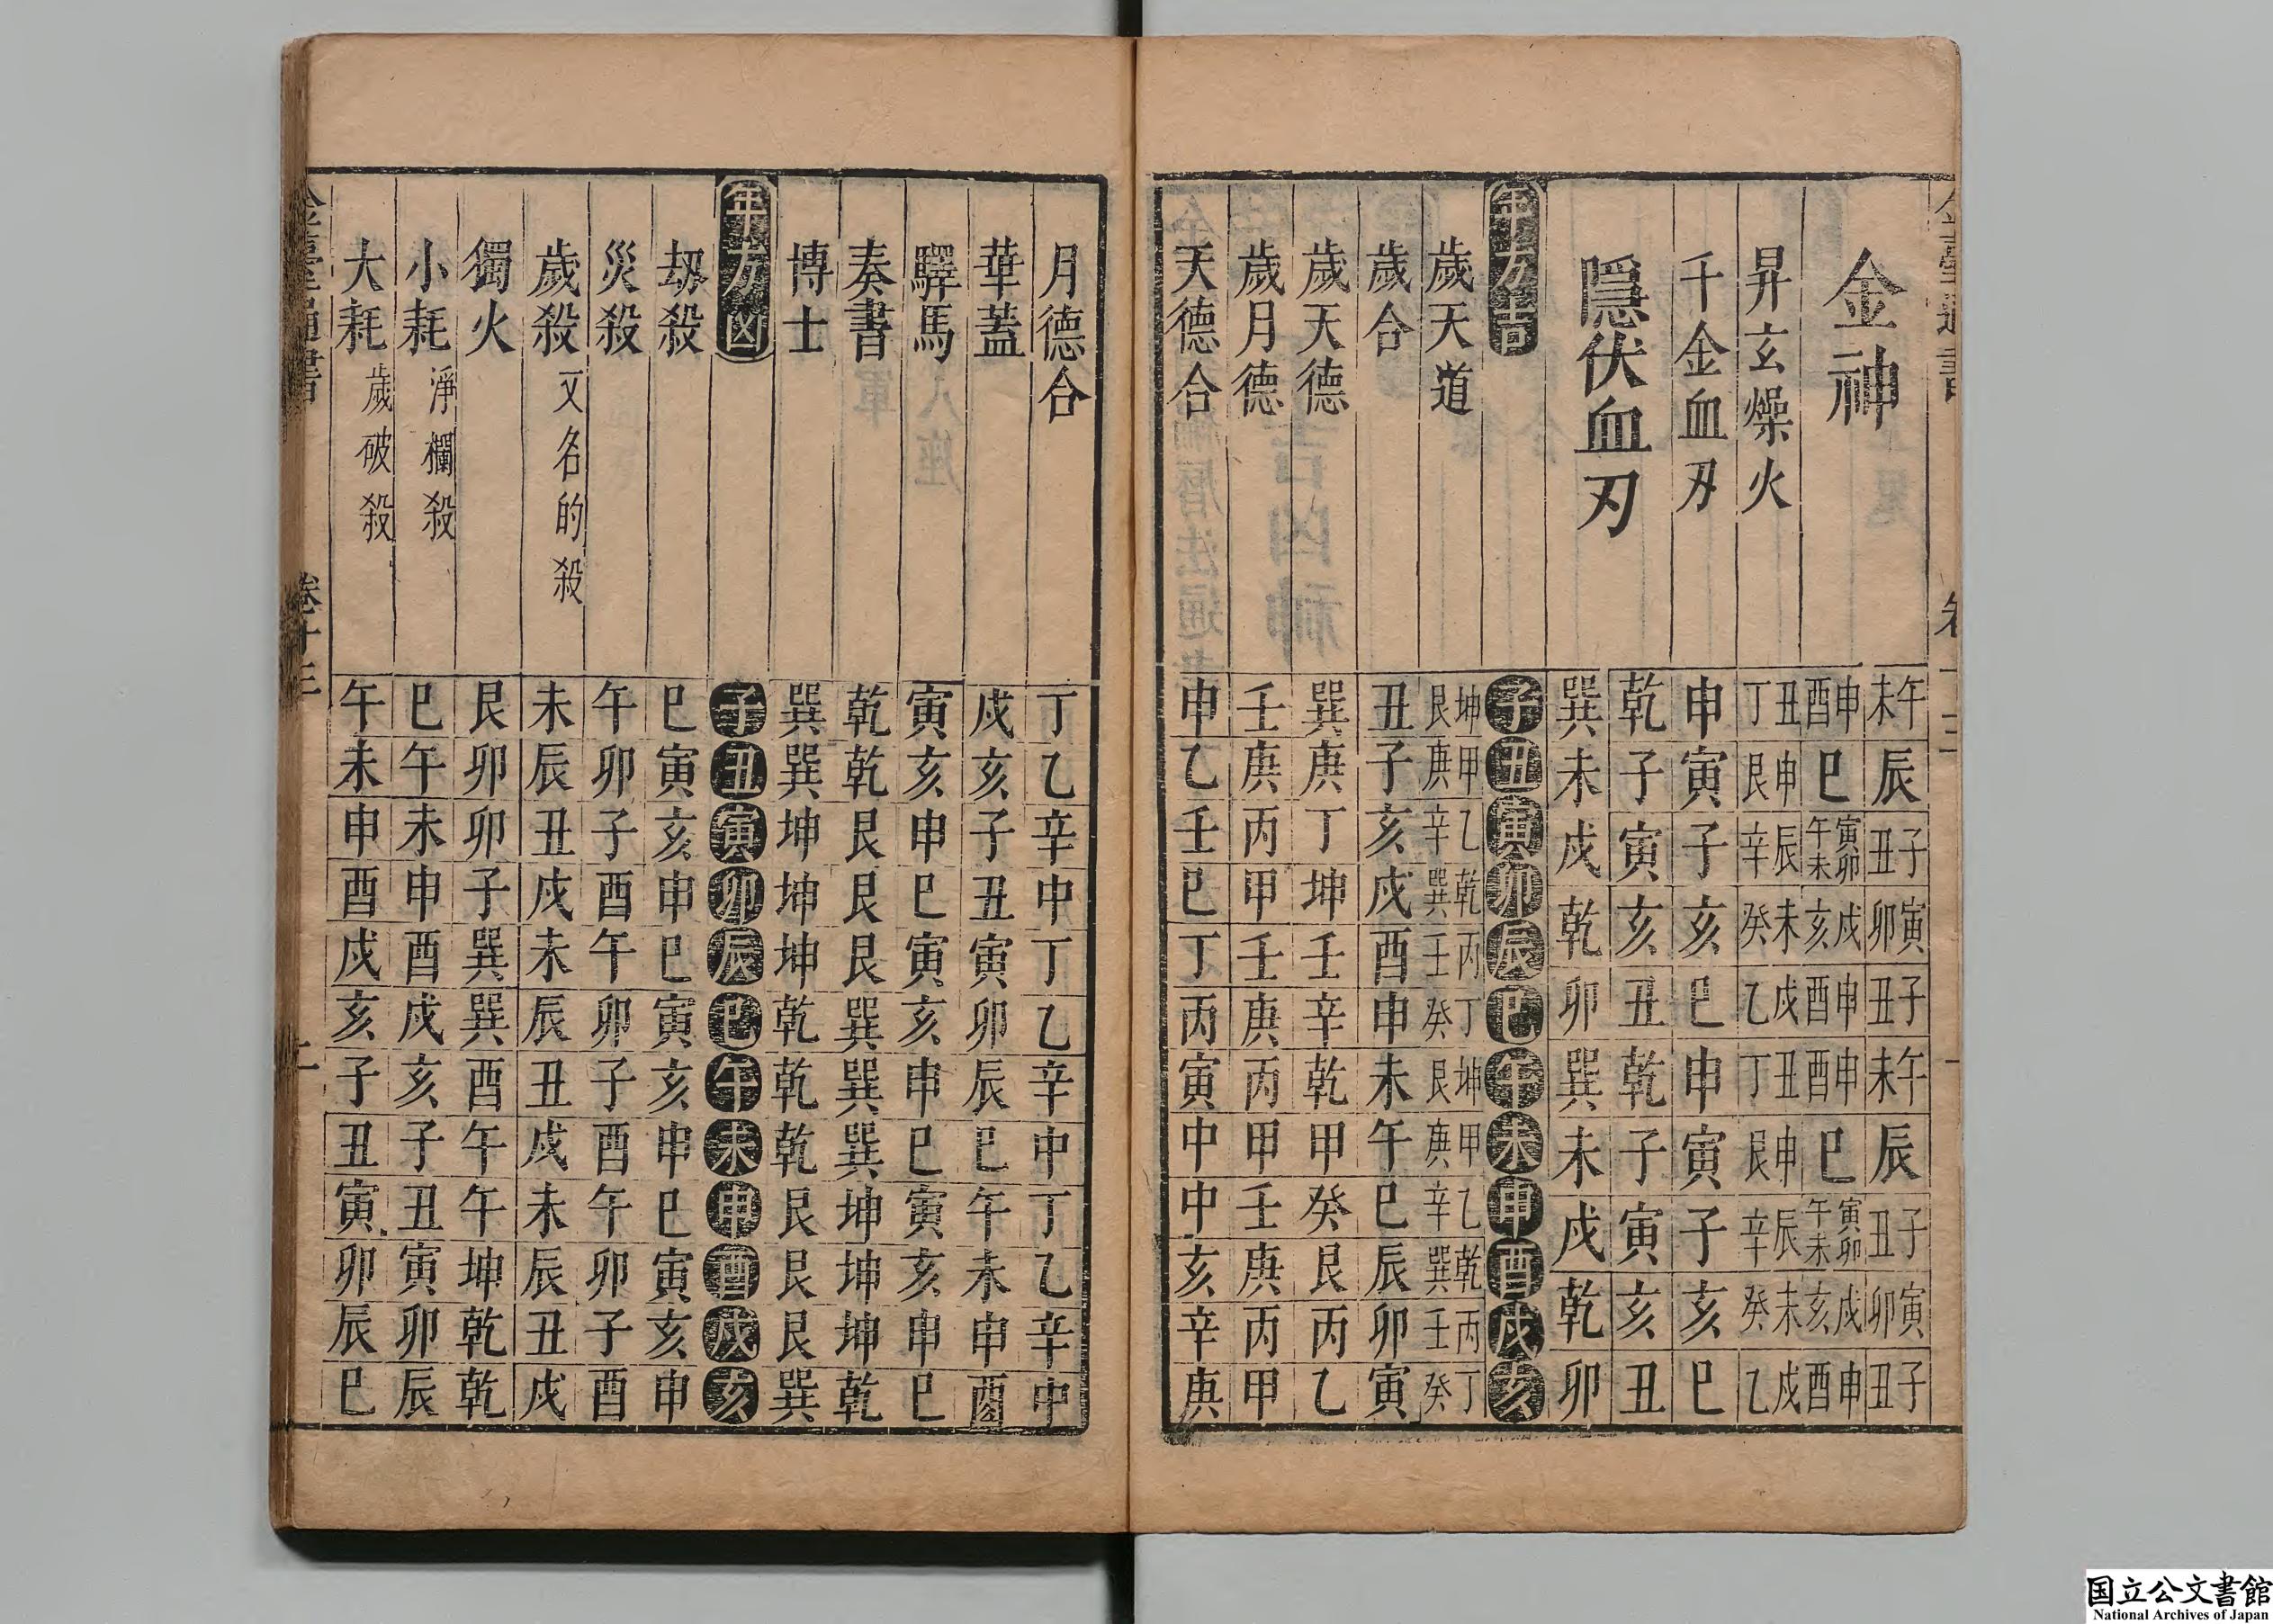 金神 午未 辰 子丑 寅卯 子丑 午未 辰 子丑 寅卯 子丑
申酉 巳 寅卯午未 戌亥 申酉 申酉 巳 寅卯午未 戌亥 申酉
昇玄燥火 丑丁 申艮 辰辛 未癸 戌乙 丑丁 申艮 辰辛 未癸 戌乙
千金血刃 申寅子亥巳申寅子亥巳
隱伏血刃 乾子寅亥丑乾子寅亥丑
巽未戌乾卯巽未戌乾卯
年方吉 子丑寅卯辰巳午未申酉戌亥
歲天道 坤艮 甲庚 乙辛 乾巽 丙壬 丁癸 坤艮 甲庚 乙辛 乾巽 丙壬 丁癸
歲合 丑子亥戌酉申未午巳辰卯寅
歲天德 巽庚丁坤壬辛乾甲癸艮丙乙
歲月德 壬庚丙甲壬庚丙甲壬庚丙甲
天德合 申乙壬巳丁丙寅中中亥辛庚
月德合 丁乙辛中丁乙辛中丁乙辛中
華蓋 戌亥子丑寅卯辰巳午未申酉
驛馬 寅亥申巳寅亥申巳寅亥申巳
奏書 乾乾艮艮艮巽巽巽坤坤坤乾
博士 巽巽坤坤坤乾乾乾艮艮艮巽
年方凶 子丑寅卯辰巳午未申酉戌亥
刼殺 巳寅亥申巳寅亥申巳寅亥申
災殺 午卯子酉午卯子酉午卯子酉
歲殺 又名的殺 未辰丑戌未辰丑戌未辰丑戌
獨火 艮卯卯子巽巽酉午午坤乾乾
小耗 淨欄殺 巳午未申酉戌亥子丑寅卯辰
大耗 歲破殺 午未申酉戌亥子丑寅卯辰巳
卷十三
国立公文書館
National Archives of Japan